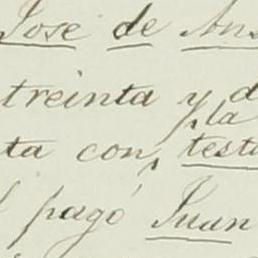 Jose de An
treinta y d
la
ta con testa
pagó Juan